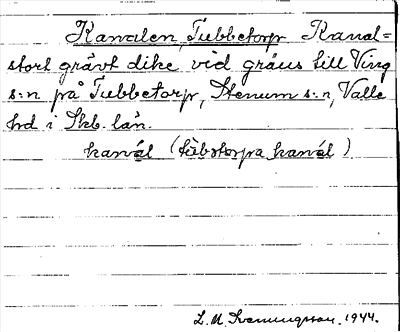 Kanalen, Tubbetorp Kanal=
stort grävt dike vid gräns till Ving
s:n på Tubbetorp, Stenum s:n, Valle
hd i Skb. län.
kanál (tùbstorpa kanál)
L. M. Svenungsson. 1944.